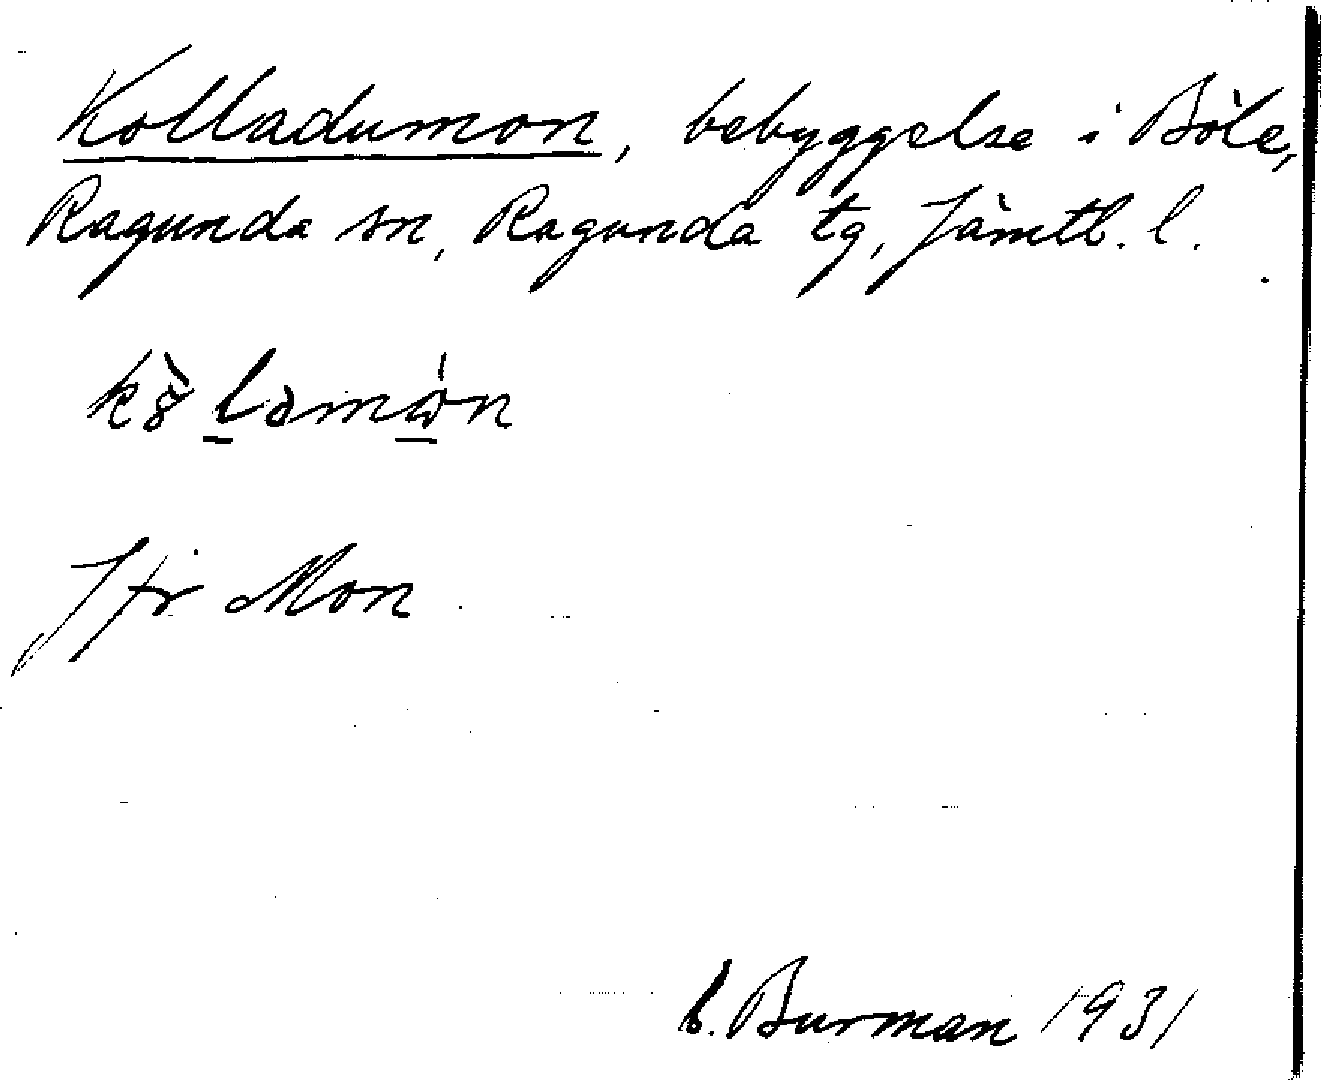 Kolladumon, bebyggelse i Böle,
Ragunda sn, Ragunda tg, Jämtl. l.
Jfr Mon
Burman 1931